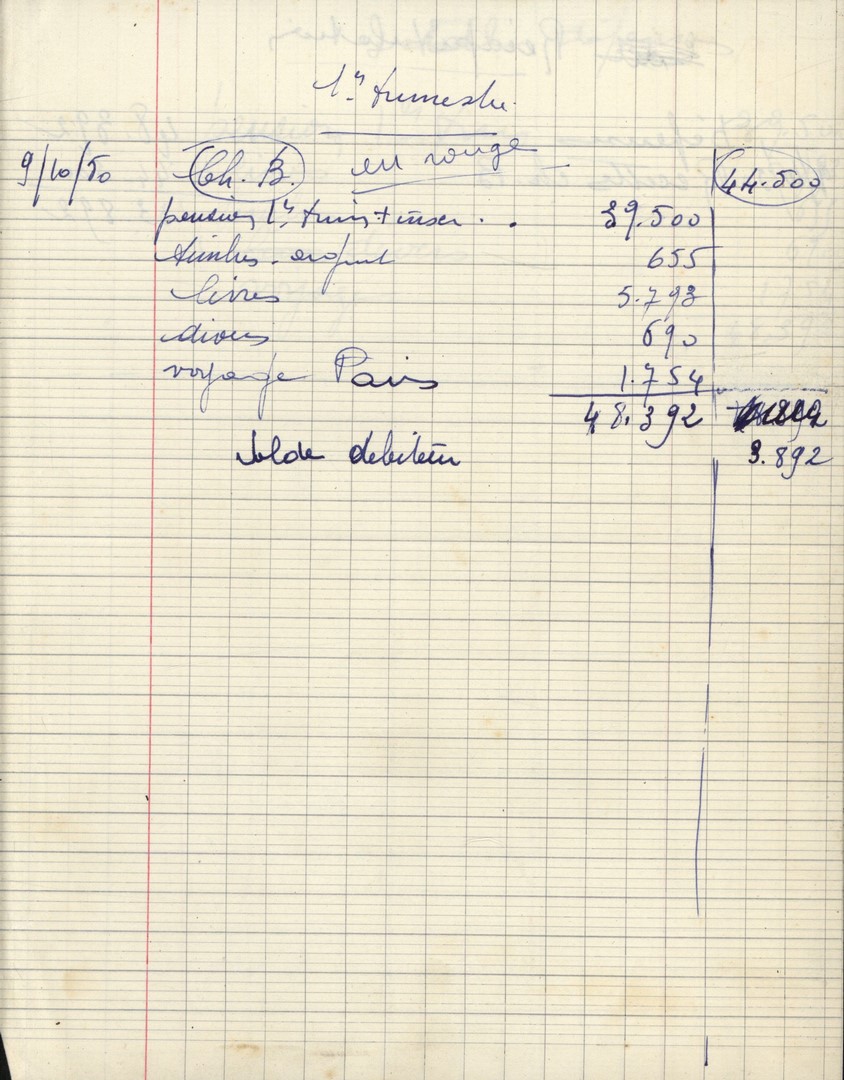 1er trimestre
9/10/50 Ch. B. en rouge 44.500
pension 1er trim + inscr. . 39.500
timbres - argent 655
livres 5.793
divers 690
voyage Paris 1.754
48.392
Solde debiteur 3.892